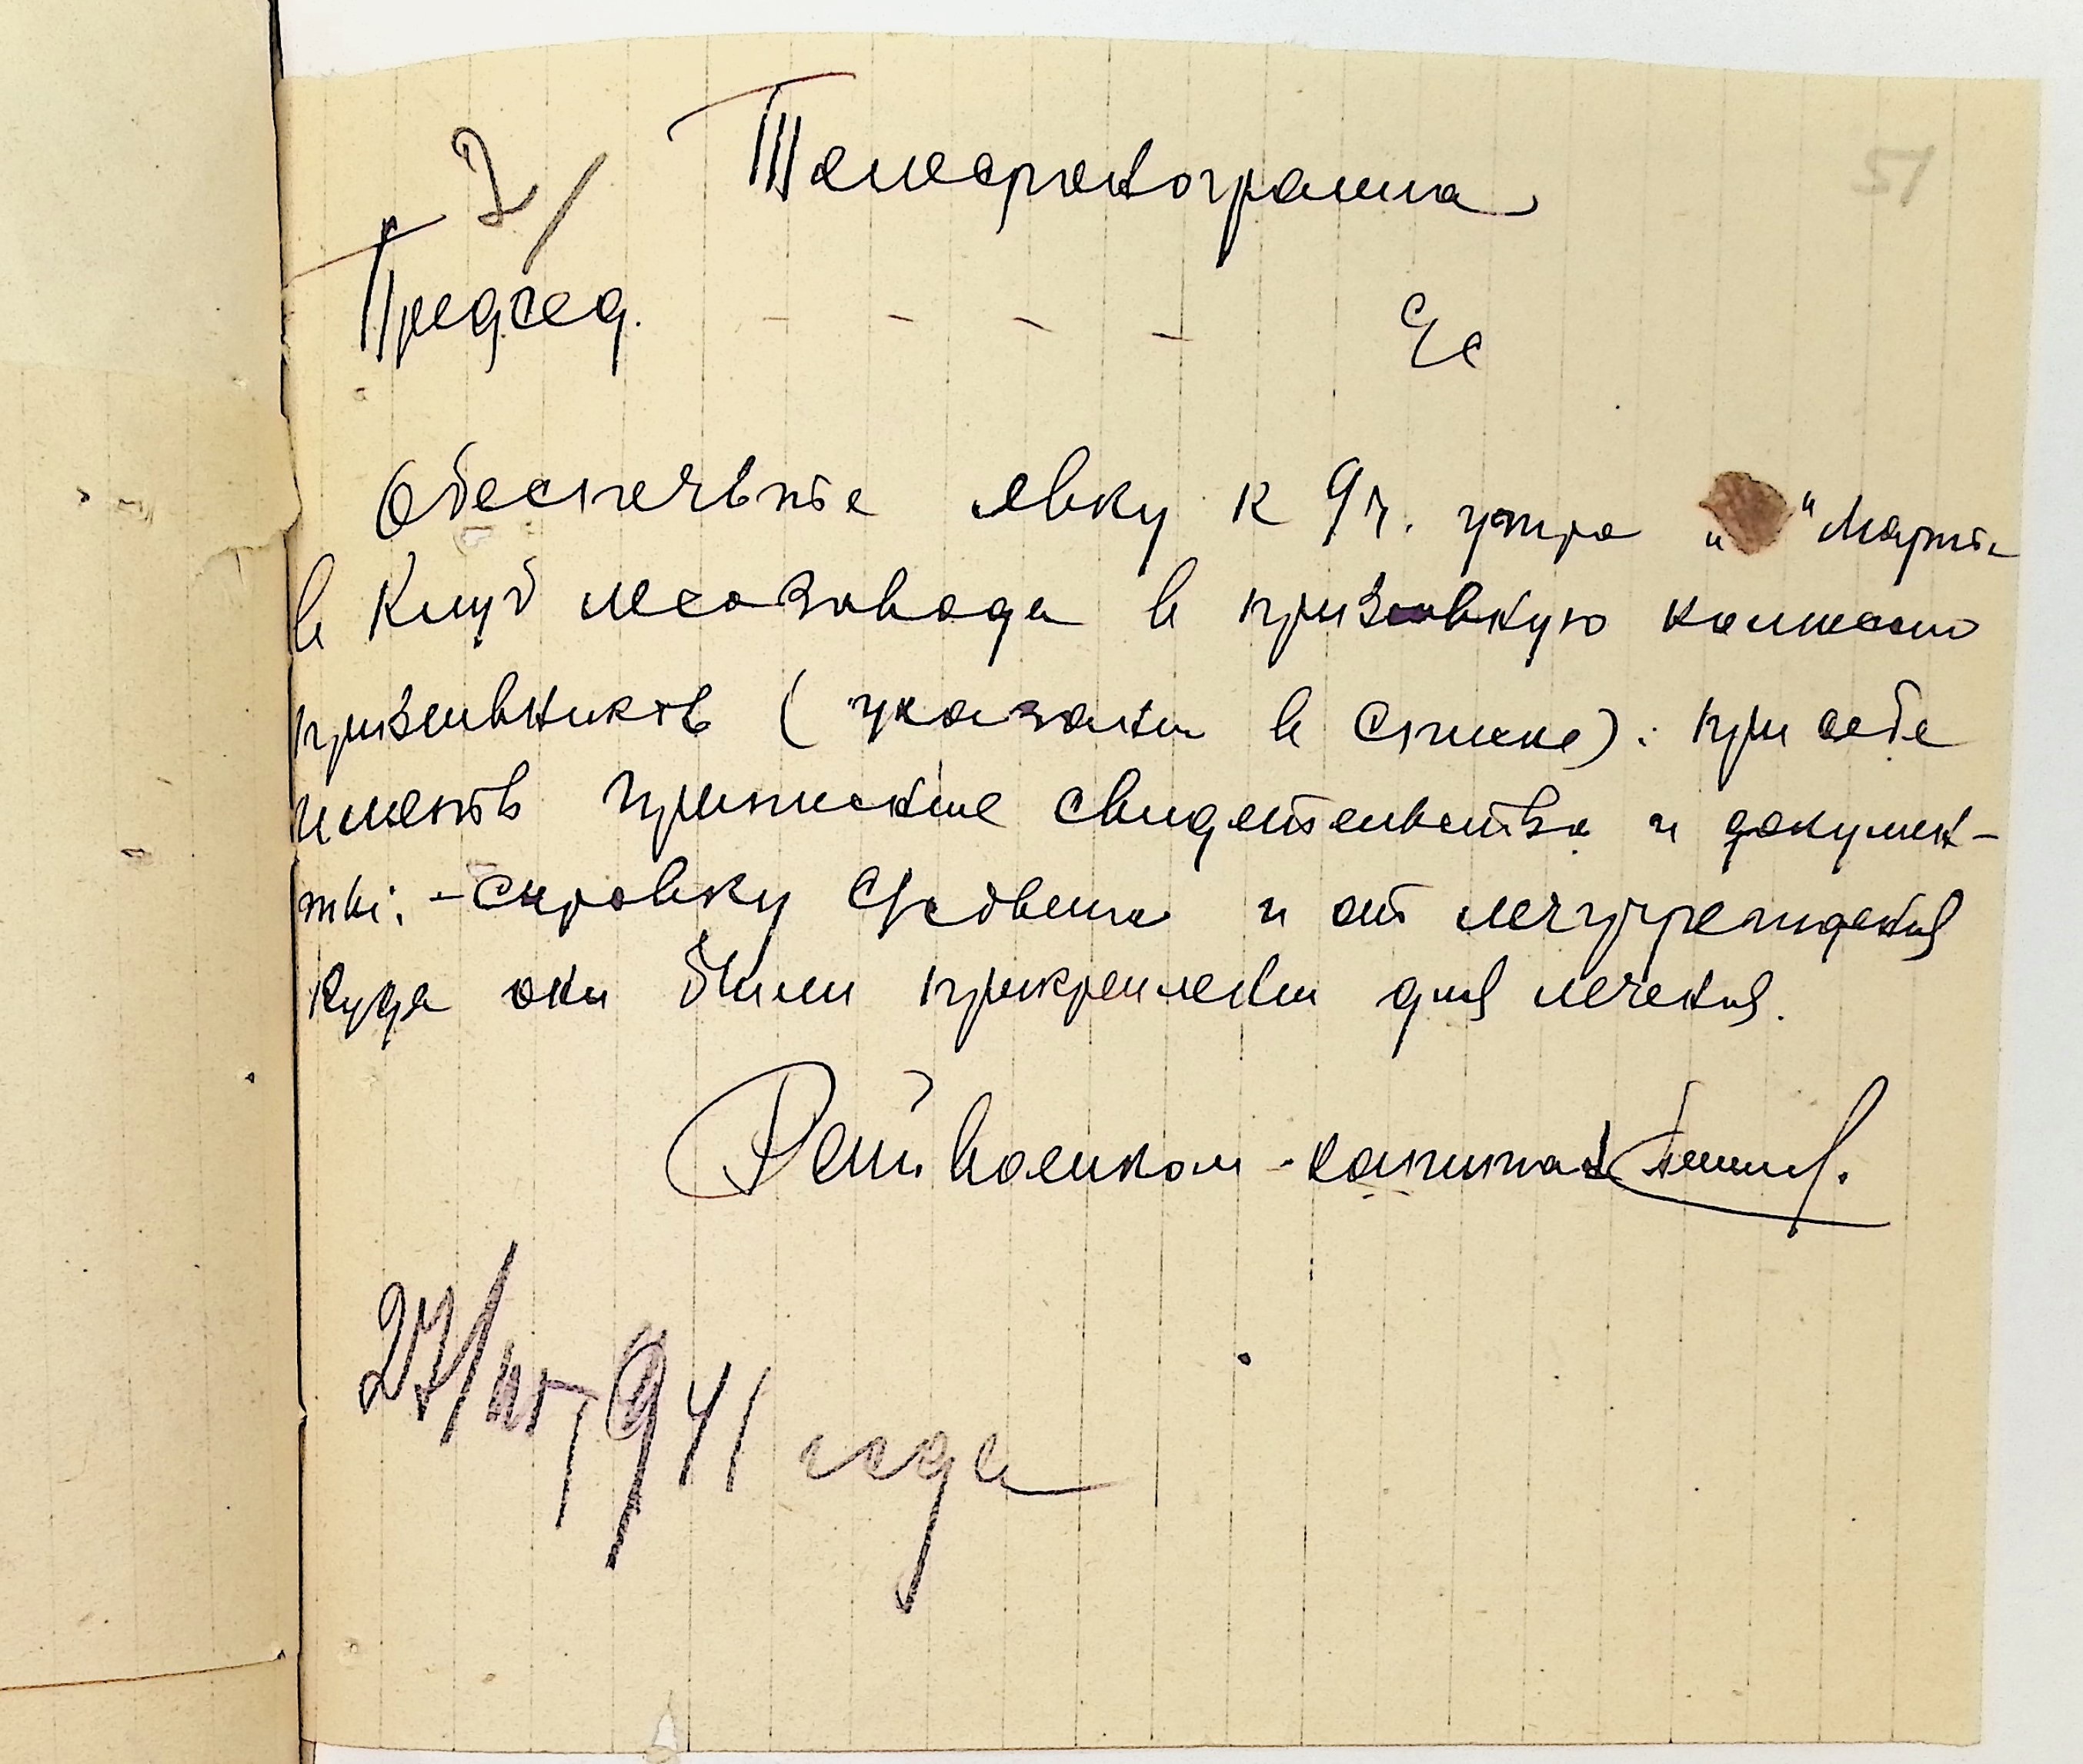 51
2/
Телефонограмма
Председ. - - - - с/с
Обеспечьте явку к 9 ч. утра " " Марта
в Клуб лесозавода в призывную комиссию
призывников (указаны в списке). при себе
иметь приписные свидетельства и докумен-
ты: - справку с/совета и от лечучреждения
куда они были прикреплены для лечения.
Райвоенком - капитан
27/III 1941 года